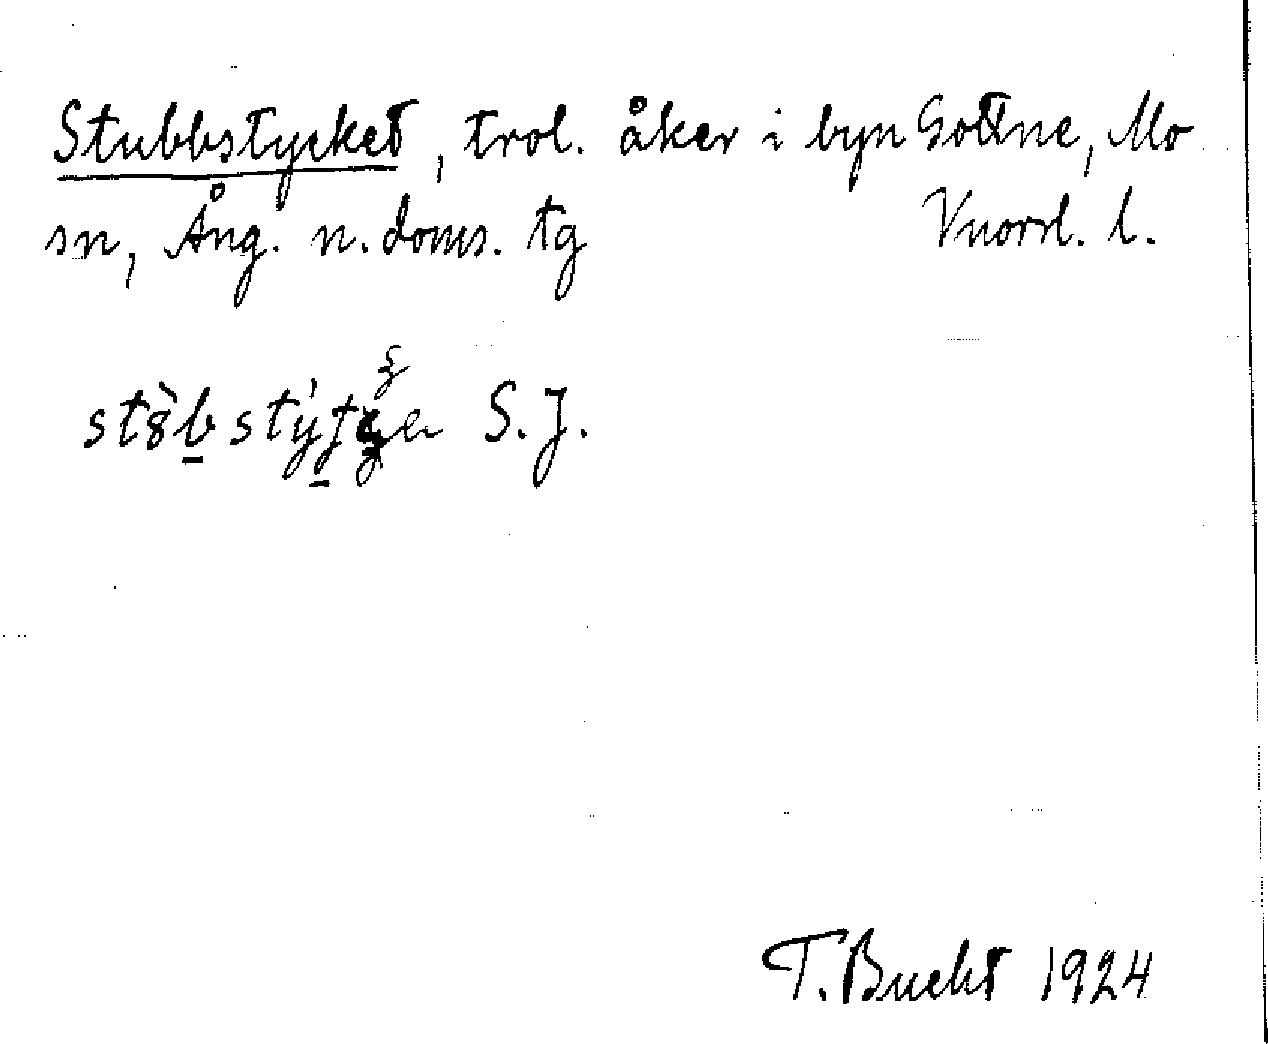 Stubbstycket, trol. åker i byn Gottne, Mo
sn, Ång. n. doms. tg Vnorrl. l.
S. J.
T. Bucht 1924